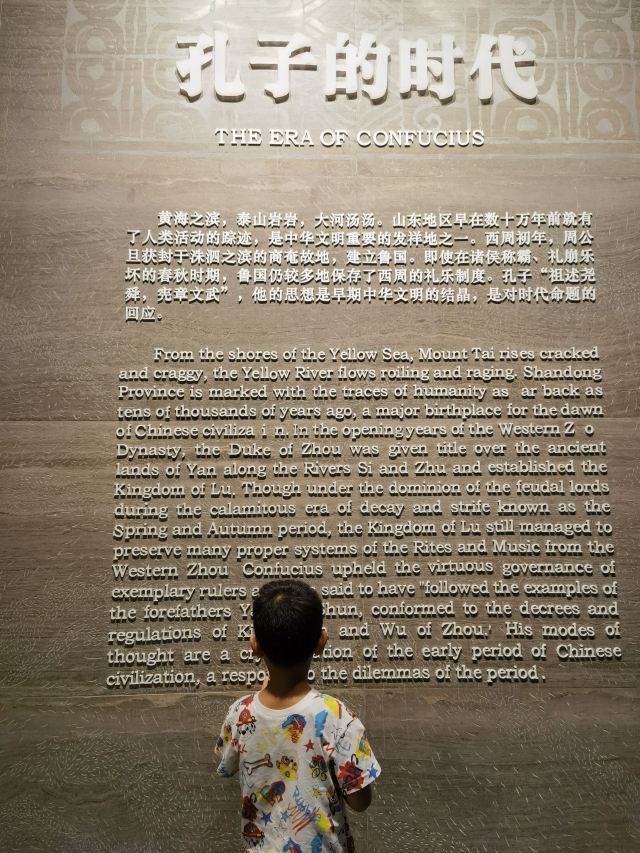 孔子的时代
THE ERA OF CONFUCIUS
黄海之滨，泰山岩岩，大河汤汤。山东地区早在数十万年前就有
了人类活动的踪迹，是中华文明重要的发祥地之一。西周初年，周公
旦获封于洙泗之滨的商奄故地，建立鲁国。即使在诸侯称霸、礼崩乐
坏的春秋时期，鲁国仍较多地保存了西周的礼乐制度。孔子“祖述尧
舜，宪章文武”，他的思想是早期中华文明的结晶，是对时代命题的
回应。
From the shores of the Yellow Sea, Mount Tai rises cracked
and craggy, the Yellow River flows roiling and raging. Shandong
Province is marked with the traces of humanity as ar back as
tens of thousands of years ago, a major birthplace for the dawn
of Chinese civiliza i n. In the opening years of the Western Z o
Dynasty, the Duke of Zhou was given title over the ancient
lands of Yan along the Rivers Si and Zhu and established the
Kingdom of Lu. Though under the dominion of the feudal lords
during the calamitous era of decay and strife known as the
Spring and Autumn period, the Kingdom of Lu still managed to
preserve many proper systems of the Rites and Music from the
Western Zhou Confucius upheld the virtuous governance of
exemplary rulers said to have "followed the examples of
the forefathers Shun, conformed to the decrees and
regulations of and Wu of Zhou.' His modes of
thought are a of the early period of Chinese
civilization, a the dilemmas of the period.